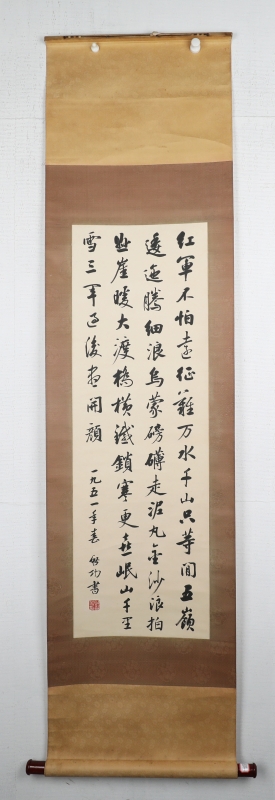 红軍不怕遠征難万水千山只等閒五嶺
逶迤腾細浪烏蒙磅礴走泥丸金沙浪拍
雲崖暖大渡橋横鐵鎖寒更喜岷山千里
雪三軍过後尽開顔
一九五一年春 啟功書